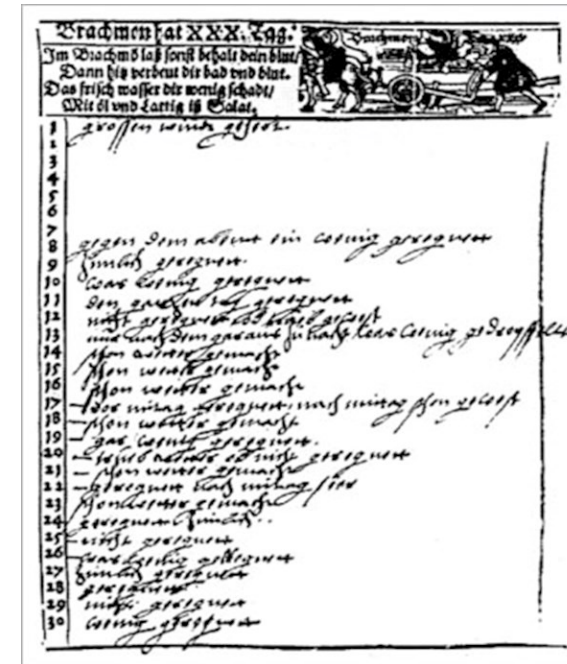 Brachmon hat XXX. Tag.
Im Brachmõ laß sonst behalt dein blut/
Dann hitz verbeut dir bad vnd blut.
Das frisch wasser dir wenig schadt/
Mit öl vnd Lattig iß Salat.
Brachmon
1 grossen windt
2
3
4
5
6
7
8 gegen dem abent ein wenig geregnett
9 zimlich geregnett
10 wenig geregnett
11 den gantzen tag geregnett
12 nicht geregnett
13 nur nach dem garaus zu nacht wenig
14 schon wetter gemacht
15 schon wetter gemacht
16 schon wetter gemacht
17 vor mitag geregnett, nach mittag schon
18 schon wetter gemacht
19 gar wenig geregnett.
20 nicht geregnett
21 schon wetter gemacht
22 geregnett nach mitag
23 schon wetter gemacht
24 geregnett zimlich
25 nicht geregnett
26 geregnett
27 zimlich geregnett
28 geregnett
29 nicht geregnett
30 wenig geregnett